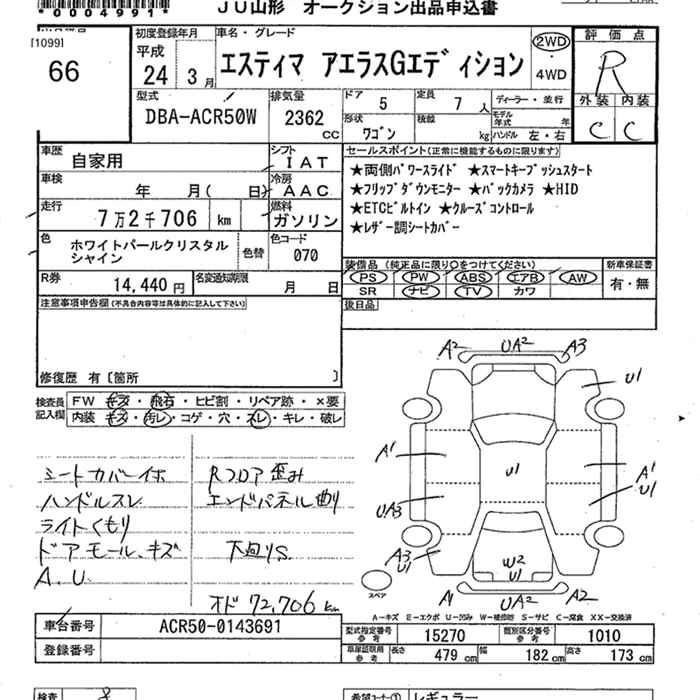 *0004991*
JU山形 オークション出品申込書
[1099]
66
初度登録年月
平成
24年 3月
車名・グレード
エスティマ アエラスGエディション
2WD
・
4WD
評価点
R
外装 内装
C C
型式
DBA-ACR50W
排気量
2362
cc
ドア 5
定員 7人
形状 ワゴン
積載 kg
ディーラー・並行
モデル年式 年
ハンドル 左・右
車歴 自家用
シフト IAT
車検 年 月( 日)
冷房 AAC
走行 7万2千706 km
燃料 ガソリン
色 ホワイトパールクリスタルシャイン
色替
色コード 070
R券 14,440円
名変通知期限 月 日
セールスポイント(正常に機能するものに限ります)
★両側パワースライド ★スマートキープッシュスタート
★フリップダウンモニター ★バックカメラ ★HID
★ETCビルトイン ★クルーズコントロール
★レザー調シートカバー
装備品 (純正品に限り○をつけてください)
PS PW ABS エアB AW
SR ナビ TV カワ
新車保証書
有・無
後日品
注意事項申告欄(不具合内容等は具体的に記入して下さい)
修復歴 有〔箇所 〕
検査員記入欄
FW キズ・飛石・ヒビ割・リペア跡・×要
内装 キズ・汚レ・コゲ・穴・スレ・キレ・破レ
シートカバー付ホ
ハンドルスレ
ライトくもり
ドアモール、キズ
A.U
Rフロア歪み
エンドパネル曲り
下回りS
オド 72,706 km
A2 UA2 A3
U1
A1
U1
A1
U1
UA3
A3
U1
W2
U1
A1 UA2 A2
スペア
A-キズ E-エクボ U-凹み W-補修跡 S-サビ C-腐食 XX-交換済
車台番号 ACR50-0143691
登録番号
型式指定番号参考 15270
類別区分番号参考 1010
車庫証明用参考 長さ 479cm 幅 182cm 高さ 173cm
検査
希望コーナー① レギュラー